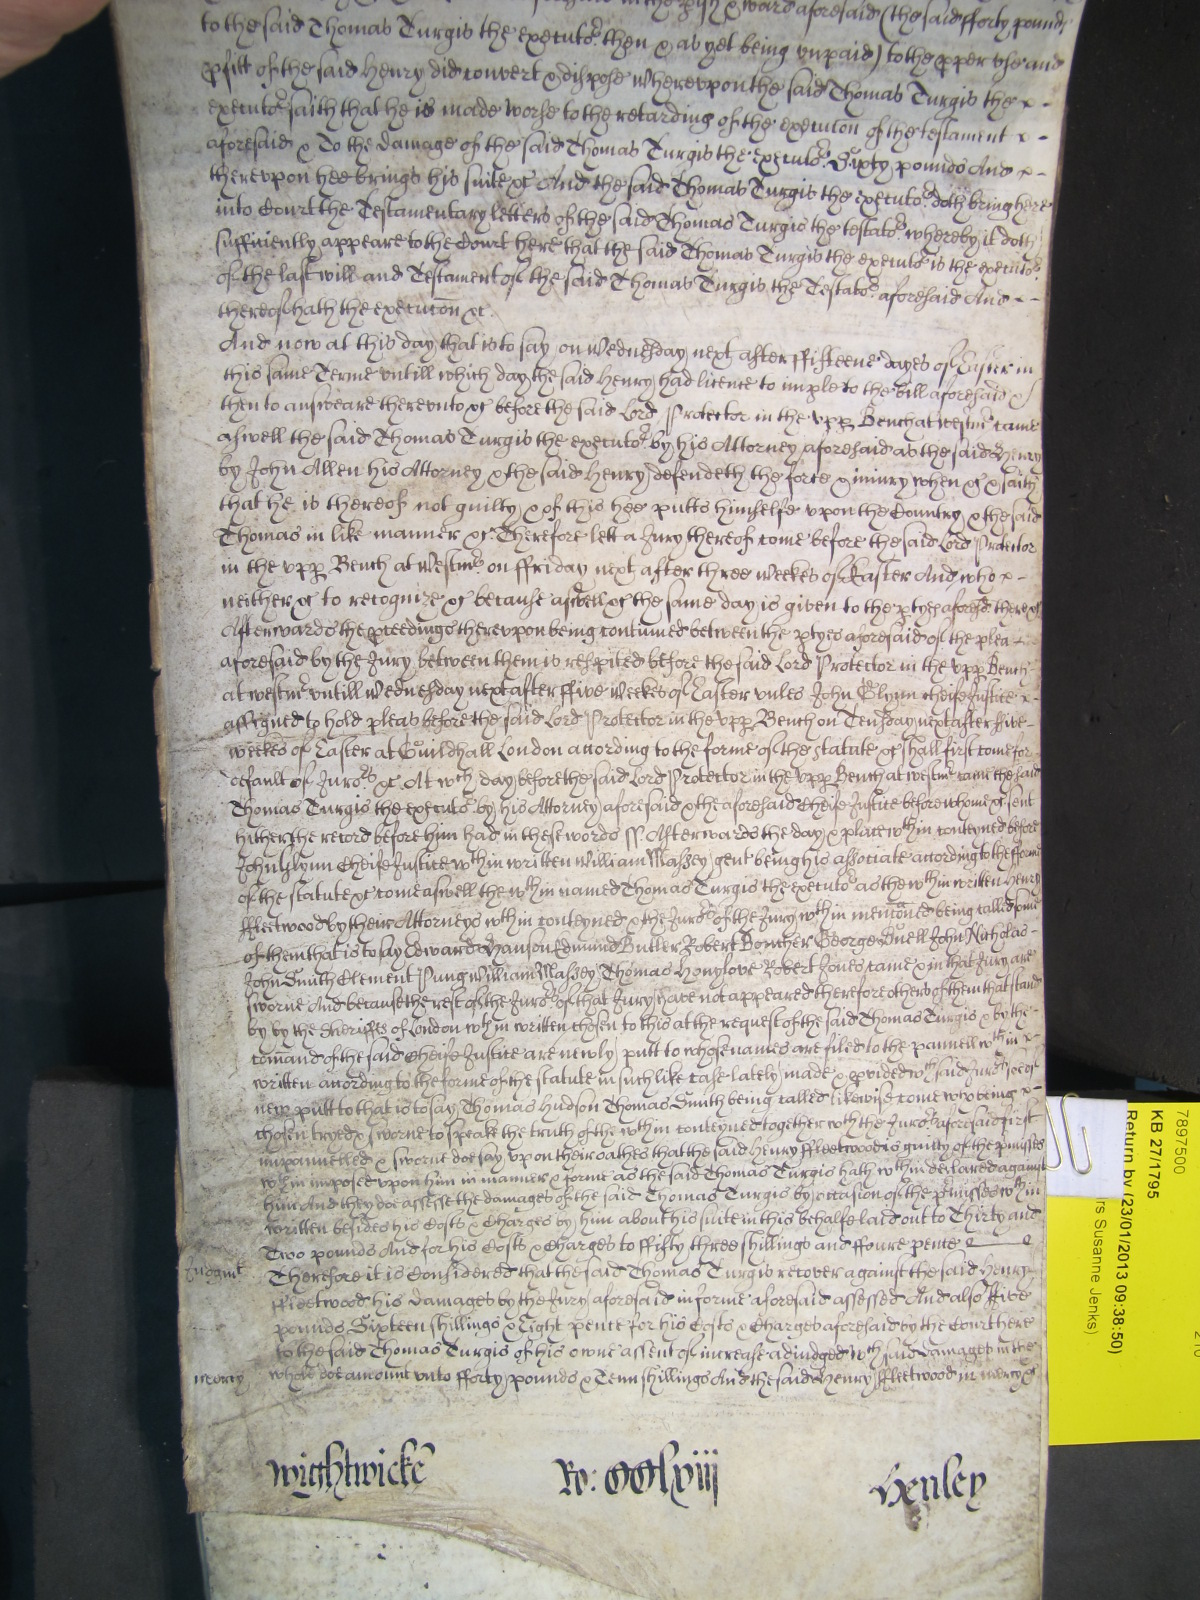 to the said Thomas Turgis the executor then & as yet being unpaid) to the pper use and
pfitt of the said Henry did convert & dispose Whereupon the said Thomas Turgis the x -
executor saith that he is made worse to the retarding of the execucon of the testament x -
aforesaid & To the damage of the said Thomas Turgis the executor Sixty pounds And x -
thereupon hee brings his suite &c And the said Thomas Turgis the executor doth bring here
into Court the Testamentary letters of the said Thomas Turgis the testator whereby it doth
sufficiently appeare to the Court here that the said Thomas Turgis the executor is the executor
of the last will and Testament of the said Thomas Turgis the Testator aforesaid And - -
thereof hath the execucon &c.
And now at this day that is to say on Wednesday next after ffifteene dayes of Easter in
this same Terme untill which day the said Henry had licence to imple to the bill aforesaid &
then to answeare thereunto &c before the said Lord Protector in the upp Bench at Westmr came
aswell the said Thomas Turgis the executor by his Attorney aforesaid as the said Henry
by John Allen his Attorney & the said Henry defendeth the force & iniury when &c & saith
that he is thereof not guilty & of this hee putts himselfe upon the Country & the said
Thomas in like manner &c Therefore lett a Jury thereof come before the said Lord Protector
in the upp Bench at Westmr on ffriday next after three Weekes of Easter And who x -
neither &c to recognize &c because aswell &c the same day is given to the ptyes aforesd there &c
Afterwards the pceedings thereupon being continued betweene the ptyes aforesaid of the plea -
aforesaid by the Jury between them is respited before the said Lord Protector in the upp Bench
at westmr untill Wednesday next after ffive Weekes of Easter unles John Glynn cheife Justice x -
assigned to hold pleas before the said Lord Protector in the upp Bench on Tuesday next after five -
weekes of Easter at Guildhall London according to the forme of the statute &c shall first come for -
default of Jurors &c At wch day before the said Lord Protector in the upp Bench at westmr came the said
Thomas Turgis the executor by his Attorney aforesaid & the aforesaid Cheife Justice before whome &c sent
hither the record before him had in these words ss. Afterwards the day & place wthin conteyned before
John Glynn Cheife Justice wthin written William Massey gent being his associate according to the fforme
of the statute &c come aswell the wthin named Thomas Turgis the executor as the wthin written Henry
ffleetwood by their Attorneys wthin conteyned & the Jurors of the Jury wthin menconed being called some
of them that is to say Edward Hanson Edmund Butler Robert Boucher George Buell John Nicholas -
John Smith Clement Pung William Massey Thomas Honylove Robert Jones came & in that Jury are
sworne And because the rest of the Jurors of that Jury have not appeared therefore others of them that stand
by by the Sheriffes of London wthin written chosen to this at the request of the said Thomas Turgis & by the -
comand of the said Cheife Justice are newly putt to whose names are filed to the pannell wthin x -
written according to the forme of the statute in such like case lately made & pvided wch said Jurors soe of
new putt to that is to say Thomas Hudson Thomas Smith being called likewise come who being x -
chosen tryed & sworne to speake the truth of the wthin conteyned together wth the Jurors aforesaid first
impannelled & sworne doe say upon their oathes that the said Henry ffleetwood is guilty of the pmisses
wthin imposed upon him in manner & forme as the said Thomas Turgis hath wthin declared against
him And they doe assesse the damages of the said Thomas Turgis by occasion of the pmisses wthin
written besides his Costs & Charges by him about his suite in this behalfe laid out to Thirty and
Two pounds And for his Costs & Charges to ffifty three shillings and ffoure pence
Judgmt
Therefore it is Considered that the said Thomas Turgis recover against the said Henry
ffleetwood his damages by the Jury aforesaid in forme aforesaid assessed And also ffive
pounds Sixteen shillings & Eight pence for his Costs & Charges aforesaid by the Court here
to the said Thomas Turgis of his owne assent of increase adiudged wch said damages in the
mercy
whole doe amount unto fforty pounds & Tenn shillings And the said Henry ffleetwood in mercy &c
Wightwicke Ro: CClxiij Henley
7897500
KB 27/1795
Return by (23/01/2013 09:38:50)
rs Susanne Jenks)